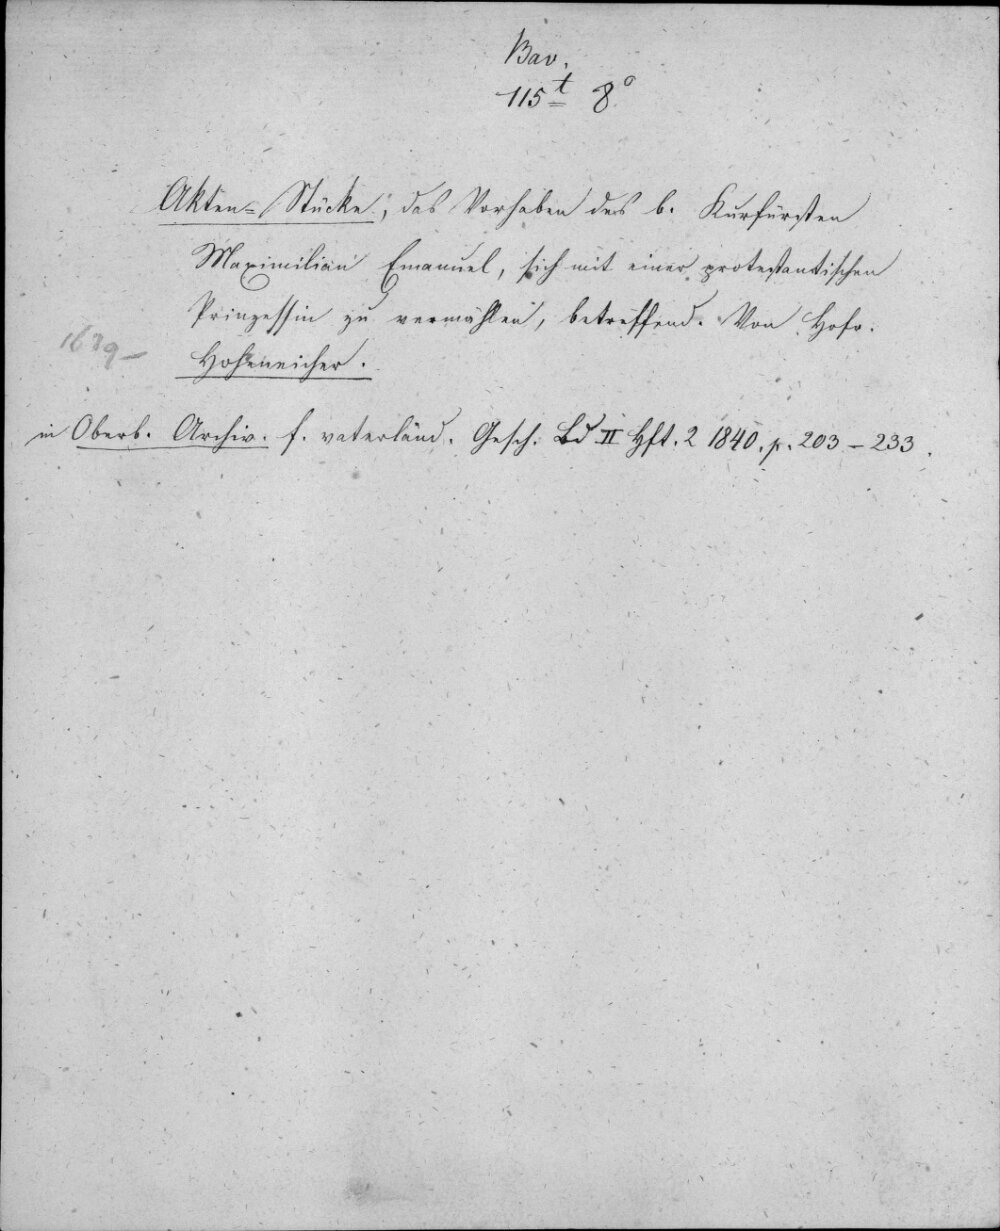 Bav.
115 t 8°
Akten=Stücke, das Vorhaben des b. Kurfürsten
Maximilian Emanuel, sich mit einer protestantischen
Prinzessin zu vermählen, betreffend. Von Hofr.
Hoheneicher.
in Oberb. Archiv. f. vaterländ. Gesch. Bd II Hft. 2 1840. p. 203 – 233.